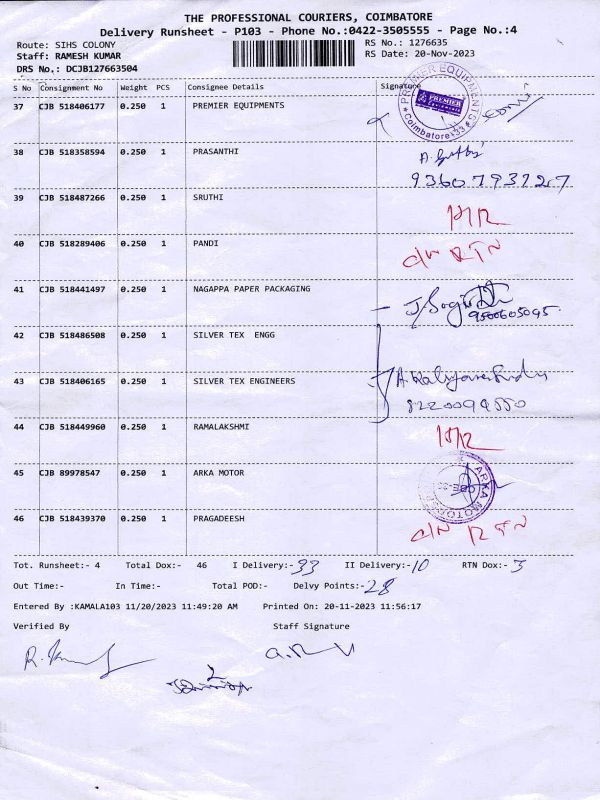 THE PROFESSIONAL COURIERS, COIMBATORE
Delivery Runsheet - P103 - Phone No.:0422-3505555 - Page No.:4
Route: SIHS COLONY RS No.: 1276635
Staff: RAMESH KUMAR RS Date: 20-Nov-2023
DRS No.: DCJB127663504
S No Consignment No Weight PCS Consignee Details Signature
37 CJB 518406177 0.250 1 PREMIER EQUIPMENTS
PREMIER EQUIPMENTS
PREMIER
Coimbatore-33
38 CJB 518358594 0.250 1 PRASANTHI
9360793727
39 CJB 518487266 0.250 1 SRUTHI
40 CJB 518289406 0.250 1 PANDI
RTN
41 CJB 518441497 0.250 1 NAGAPPA PAPER PACKAGING
9500605095
42 CJB 518486508 0.250 1 SILVER TEX ENGG
43 CJB 518406165 0.250 1 SILVER TEX ENGINEERS
44 CJB 518449960 0.250 1 RAMALAKSHMI
45 CJB 89978547 0.250 1 ARKA MOTOR
ARKA MOTORS
46 CJB 518439370 0.250 1 PRAGADEESH
RTN
Tot. Runsheet:- 4 Total Dox:- 46 I Delivery:- 33 II Delivery:- 10 RTN Dox:- 3
Out Time:- In Time:- Total POD:- Delvy Points:- 28
Entered By :KAMALA103 11/20/2023 11:49:20 AM Printed On: 20-11-2023 11:56:17
Verified By Staff Signature